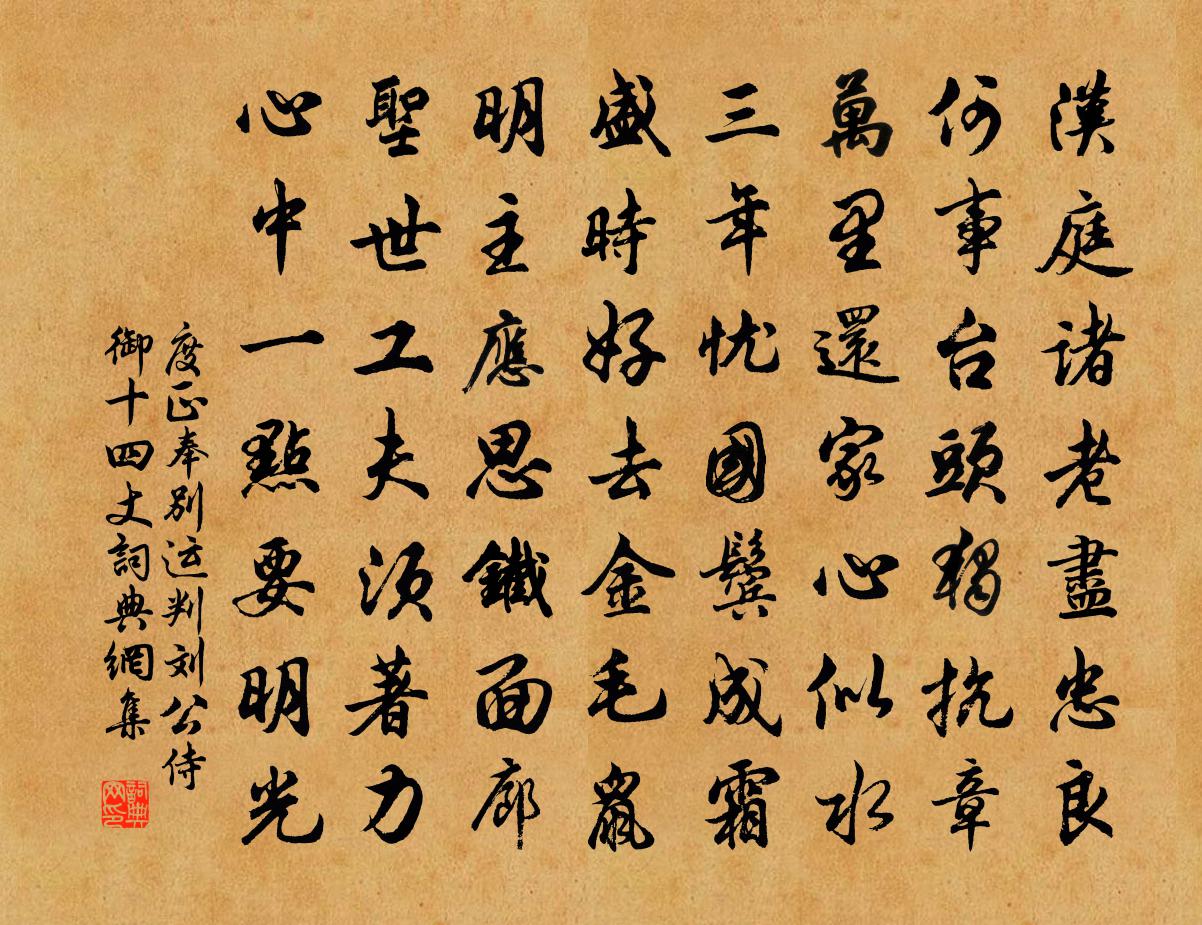 漢庭諸老盡忠良
何事台頭獨抗章
萬里還家心似水
三年忧國鬓成霜
盛時好去金毛鼠
明主應思鐵面廊
聖世工夫須著力
心中一點要明光
度正奉别运判刘公侍
御十四丈詞典網集
詞典
网印